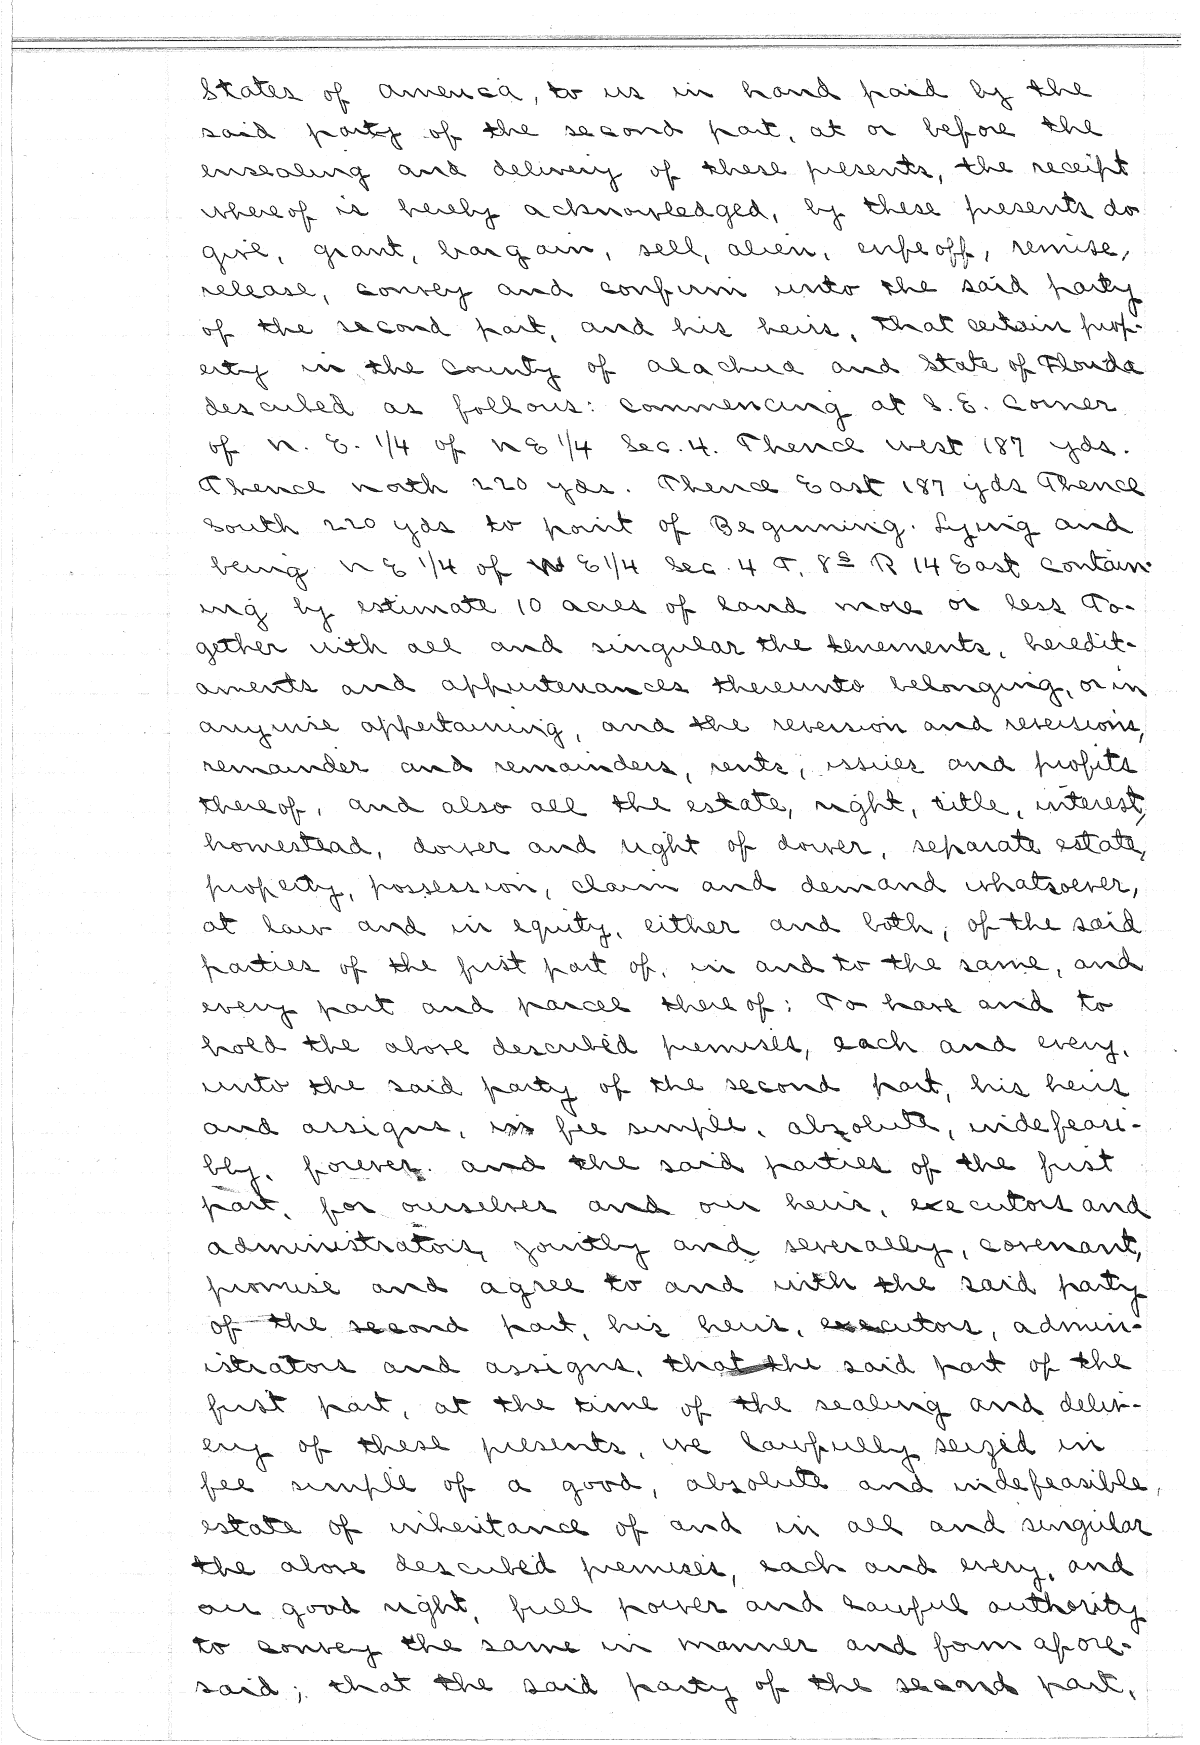 States of America, to us in hand paid by the
said party of the second part, at or before the
ensealing and delivery of these presents, the receipt
whereof is hereby acknowledged, by these presents do
give, grant, bargain, sell, alien, enfeoff, remise,
release, convey and confirm unto the said party
of the second part, and his heirs, that certain prop-
erty in the County of Alachua and State of Florida
described as follows: Commencing at S. E. Corner
of N. E. 1/4 of NE 1/4 Sec. 4. Thence west 187 yds.
Thence north 220 yds. Thence East 187 yds Thence
South 220 yds to point of Beginning. Lying and
being NE 1/4 of E 1/4 Sec 4 T. 8S R 14 East contain-
ing by estimate 10 acres of land more or less To-
gether with all and singular the tenements, heredit-
aments and appurtenances thereunto belonging, or in
anywise appertaining, and the reversion and reversions,
remainder and remainders, rents, issues and profits
thereof, and also all the estate, right, title, interest,
homestead, dower and right of dower, separate estate,
property, possession, claim and demand whatsoever,
at law and in equity, either and both, of the said
parties of the first part of, in and to the same, and
every part and parcel thereof: To have and to
hold the above described premises, each and every,
unto the said party of the second part, his heirs
and assigns, in fee simple, absolute, indefeasi-
bly, forever. And the said parties of the first
part, for ourselves and our heirs, executors and
administrators, jointly and severally, covenant,
promise and agree to and with the said party
of the second part, his heirs, executors, admin-
istrators and assigns, that the said part of the
first part, at the time of the sealing and deliv-
ery of these presents, we lawfully seized in
fee simple of a good, absolute and indefeasible,
estate of inheritance of and in all and singular
the above described premises, each and every, and
our good right, full power and lawful authority
to convey the same in manner and form afore-
said; that the said party of the second part,